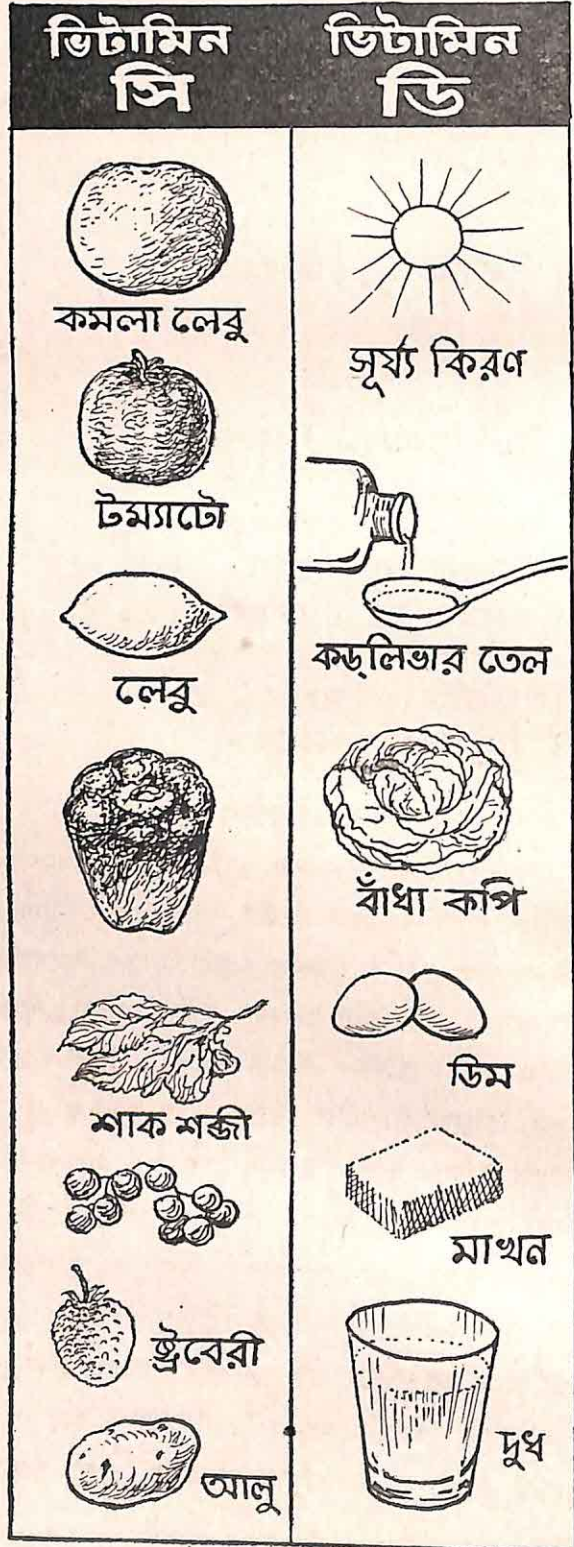 ভিটামিন
সি
কমলা লেবু
টম্যাটো
লেবু
শাক শব্জী
ষ্ট্রবেরী
আলু
ভিটামিন
ডি
সূর্য্য কিরণ
কড্‌লিভার তেল
বাঁধা কপি
ডিম
মাখন
দুধ